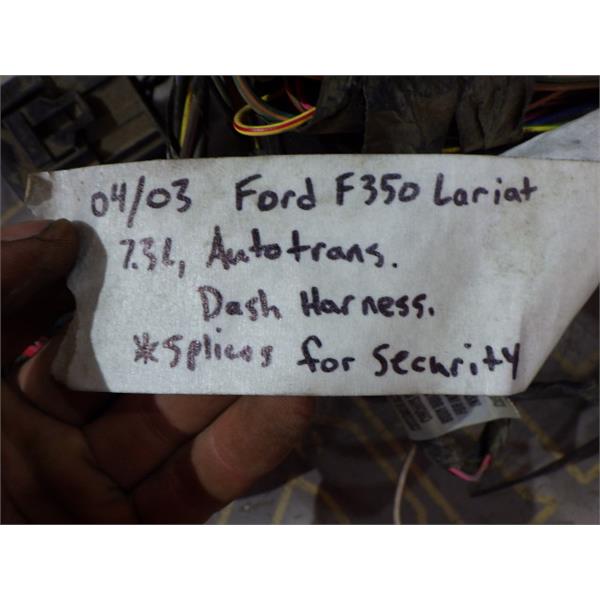 04/03 Ford F350 Lariat
7.3L, Auto trans.
Dash Harness.
*Splices for Security